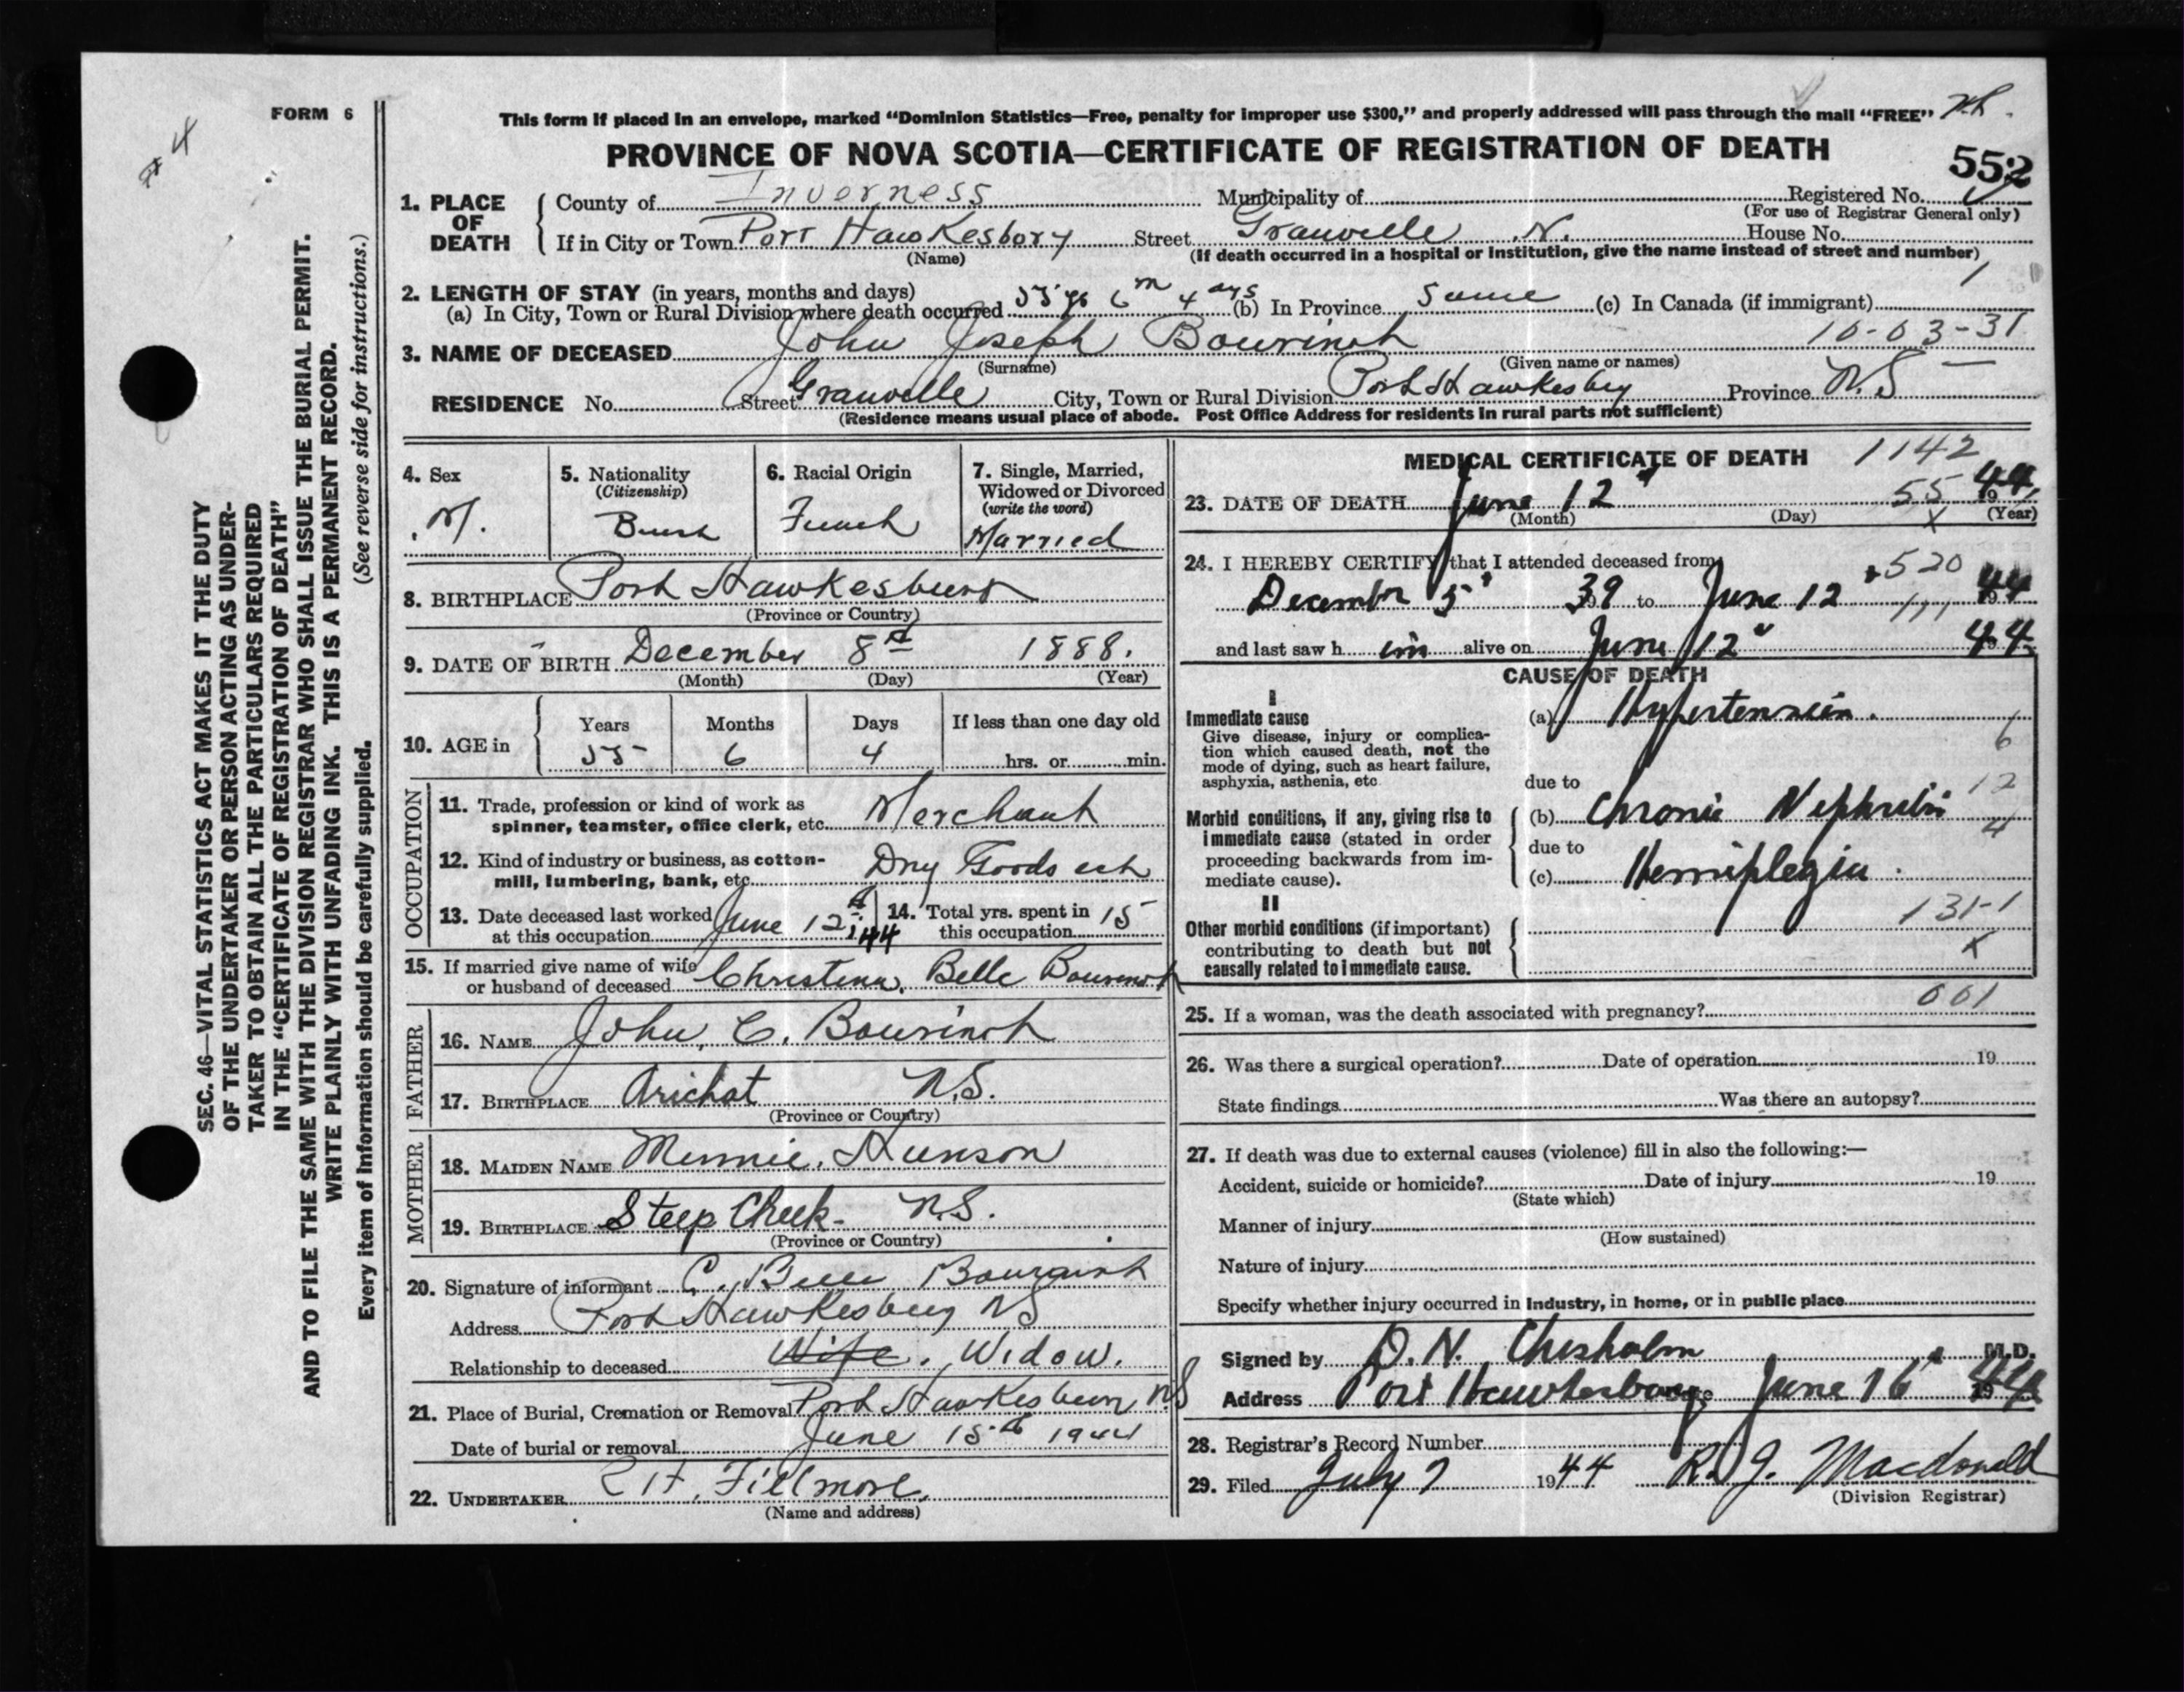 FORM 6
This form if placed in an envelope, marked “Dominion Statistics—Free, penalty for improper use $300,” and properly addressed will pass through the mail “FREE”
PROVINCE OF NOVA SCOTIA—CERTIFICATE OF REGISTRATION OF DEATH
552
1. PLACE OF DEATH
County of Inverness Municipality of Registered No.
(For use of Registrar General only)
If in City or Town Port Hawkesbory Street Granville N. House No.
(Name) (If death occurred in a hospital or institution, give the name instead of street and number)
2. LENGTH OF STAY (in years, months and days)
(a) In City, Town or Rural Division where death occurred 55 6 m 4 ays (b) In Province Same (c) In Canada (if immigrant)
10-03-31
3. NAME OF DECEASED John Joseph Bourinot
(Surname) (Given name or names)
RESIDENCE No. Street Granville City, Town or Rural Division Port Hawkesbury Province N.S
(Residence means usual place of abode. Post Office Address for residents in rural parts not sufficient)
4. Sex
M.
5. Nationality
(Citizenship)
6. Racial Origin
French
7. Single, Married,
Widowed or Divorced
(write the word)
Married
8. BIRTHPLACE Port Hawkesbury
(Province or Country)
9. DATE OF BIRTH December 8th 1888.
(Month) (Day) (Year)
10. AGE in
Years Months Days If less than one day old
55 6 4 hrs. or min.
OCCUPATION
11. Trade, profession or kind of work as
spinner, teamster, office clerk, etc. Merchant
12. Kind of industry or business, as cotton-
mill, lumbering, bank, etc. Dry Goods ect
13. Date deceased last worked
at this occupation June 12th 1944
14. Total yrs. spent in
this occupation 15
15. If married give name of wife
or husband of deceased Christena Belle Bourinot
FATHER
16. NAME John. C. Bourinot
17. BIRTHPLACE Arichat N.S.
(Province or Country)
MOTHER
18. MAIDEN NAME Minnie.
19. BIRTHPLACE Steep Cheek- N.S.
(Province or Country)
20. Signature of informant C. Belle Bourinot
Address Port Hawkesbury NS
Relationship to deceased Wife. Widow.
21. Place of Burial, Cremation or Removal Port Hawkesbury NS
Date of burial or removal June 15th 1944
22. UNDERTAKER Fillmore.
(Name and address)
MEDICAL CERTIFICATE OF DEATH 1142
23. DATE OF DEATH June 12" 55 1944
(Month) (Day) (Year)
24. I HEREBY CERTIFY that I attended deceased from 520
December 5" 39 to June 12" 111 1944
and last saw h im alive on June 12" 1944
CAUSE OF DEATH
I
Immediate cause
Give disease, injury or complica-
tion which caused death, not the
mode of dying, such as heart failure,
asphyxia, asthenia, etc
(a) Hypertension.
6
due to
12
Morbid conditions, if any, giving rise to
immediate cause (stated in order
proceeding backwards from im-
mediate cause).
(b) Chronic Nephritis
4
due to
(c) Hemiplegia.
II
131-1
Other morbid conditions (if important)
contributing to death but not
causally related to immediate cause.
x
001
25. If a woman, was the death associated with pregnancy?
26. Was there a surgical operation? Date of operation 19
State findings Was there an autopsy?
27. If death was due to external causes (violence) fill in also the following:—
Accident, suicide or homicide? Date of injury 19
(State which)
Manner of injury
(How sustained)
Nature of injury
Specify whether injury occurred in industry, in home, or in public place
Signed by D. N. Chisholm M.D.
Address Port Hawkesbury Date June 16" 1944
28. Registrar's Record Number
29. Filed July 7 1944 R. J. Macdonald
(Division Registrar)
SEC. 46—VITAL STATISTICS ACT MAKES IT THE DUTY
OF THE UNDERTAKER OR PERSON ACTING AS UNDER-
TAKER TO OBTAIN ALL THE PARTICULARS REQUIRED
IN THE “CERTIFICATE OF REGISTRATION OF DEATH”
AND TO FILE THE SAME WITH THE DIVISION REGISTRAR WHO SHALL ISSUE THE BURIAL PERMIT.
WRITE PLAINLY WITH UNFADING INK. THIS IS A PERMANENT RECORD.
Every item of information should be carefully supplied. (See reverse side for instructions.)